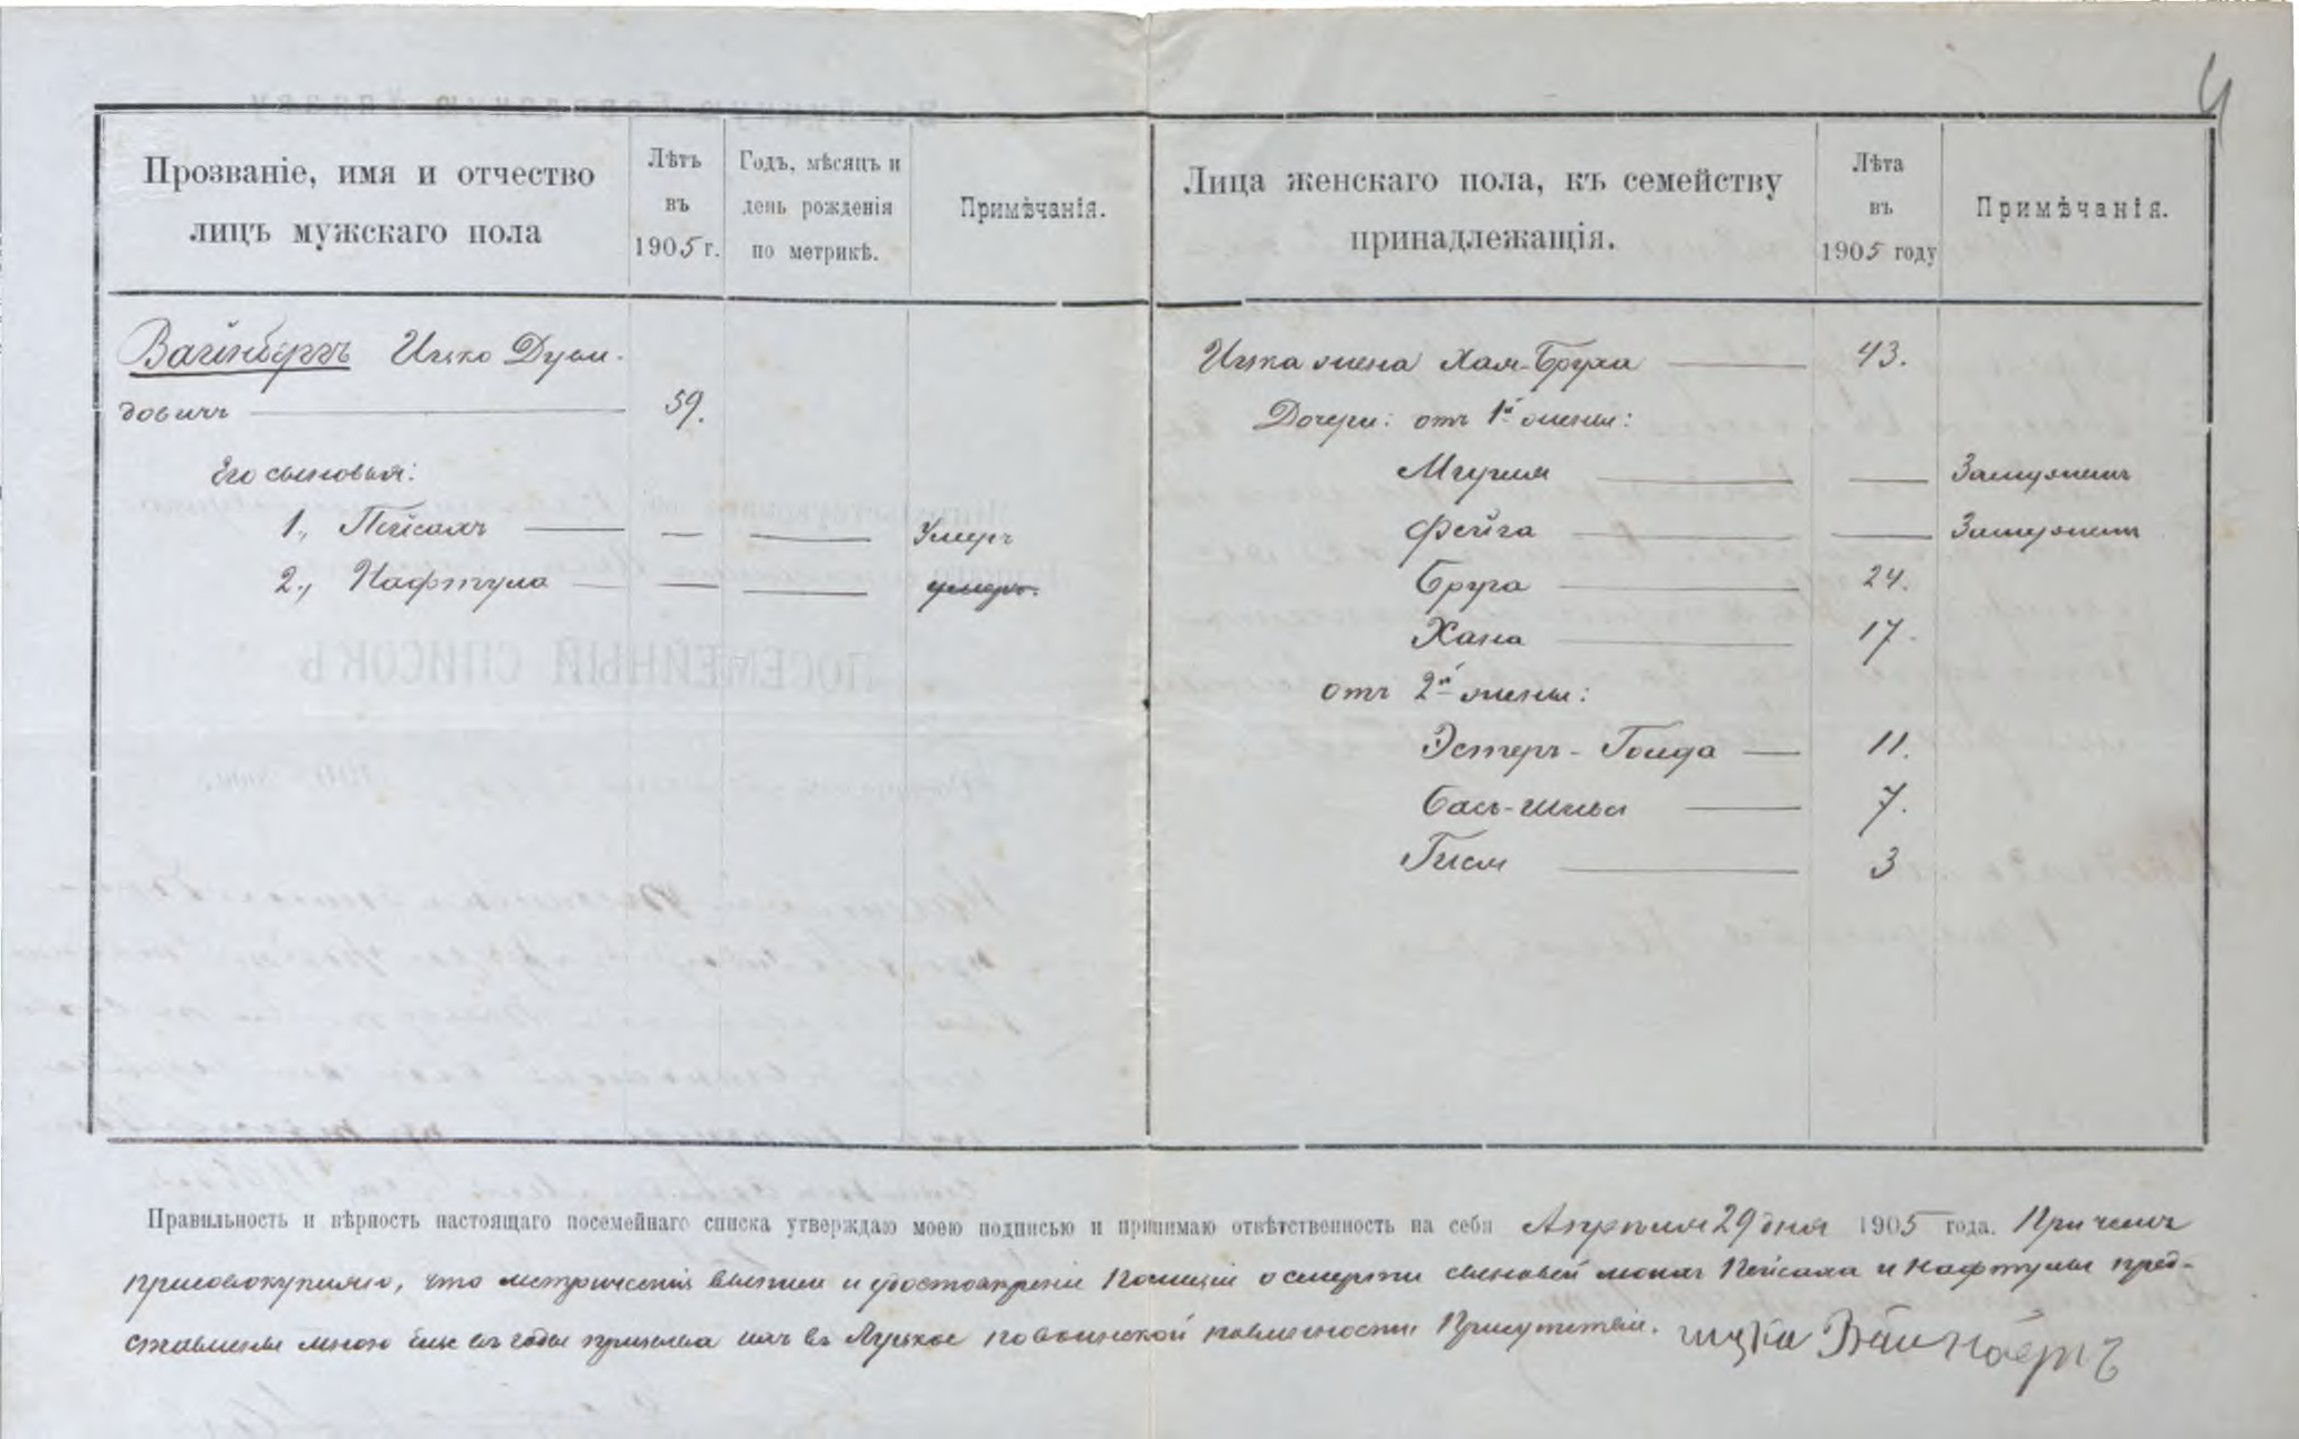 Прозваніе, имя и отчество
лицъ мужскаго пола
Лѣтъ
въ
1905 г.
Годъ, мѣсяцъ и
день рожденія
по метрикѣ.
Примѣчанія.
Лица женскаго пола, къ семейству
принадлежащія.
Лѣта
въ
1905 году
Примѣчанія.
Вайнбергъ Ицко Дуви-
довичъ — 59.
Его сыновья:
1., Пейсахъ — — — Умеръ
2., Нафтула — — — умеръ.
Ицка жена Хая-Бруха — 43.
Дочери: отъ 1й жены:
— — Замужемъ
Фейга — — Замужемъ
— 24.
Хана — 17.
отъ 2й жены:
Эстеръ-Голда — 11.
Бась-Шива — 7.
— 3
Правильность и вѣрность настоящаго посемейнаго списка утверждаю моею подписью и принимаю отвѣтственность на себя Апрѣля 29 дня 1905 года. При чемъ
присовокупляю, что метрическія выписи и удостовѣренія Полиціи о смерти сыновей моихъ Пейсаха и Нафтулы пред-
ставлены мною еще въ годы призыва ихъ въ Луцкое по воинской повинности Присутствіе. ицко Вайнбергъ